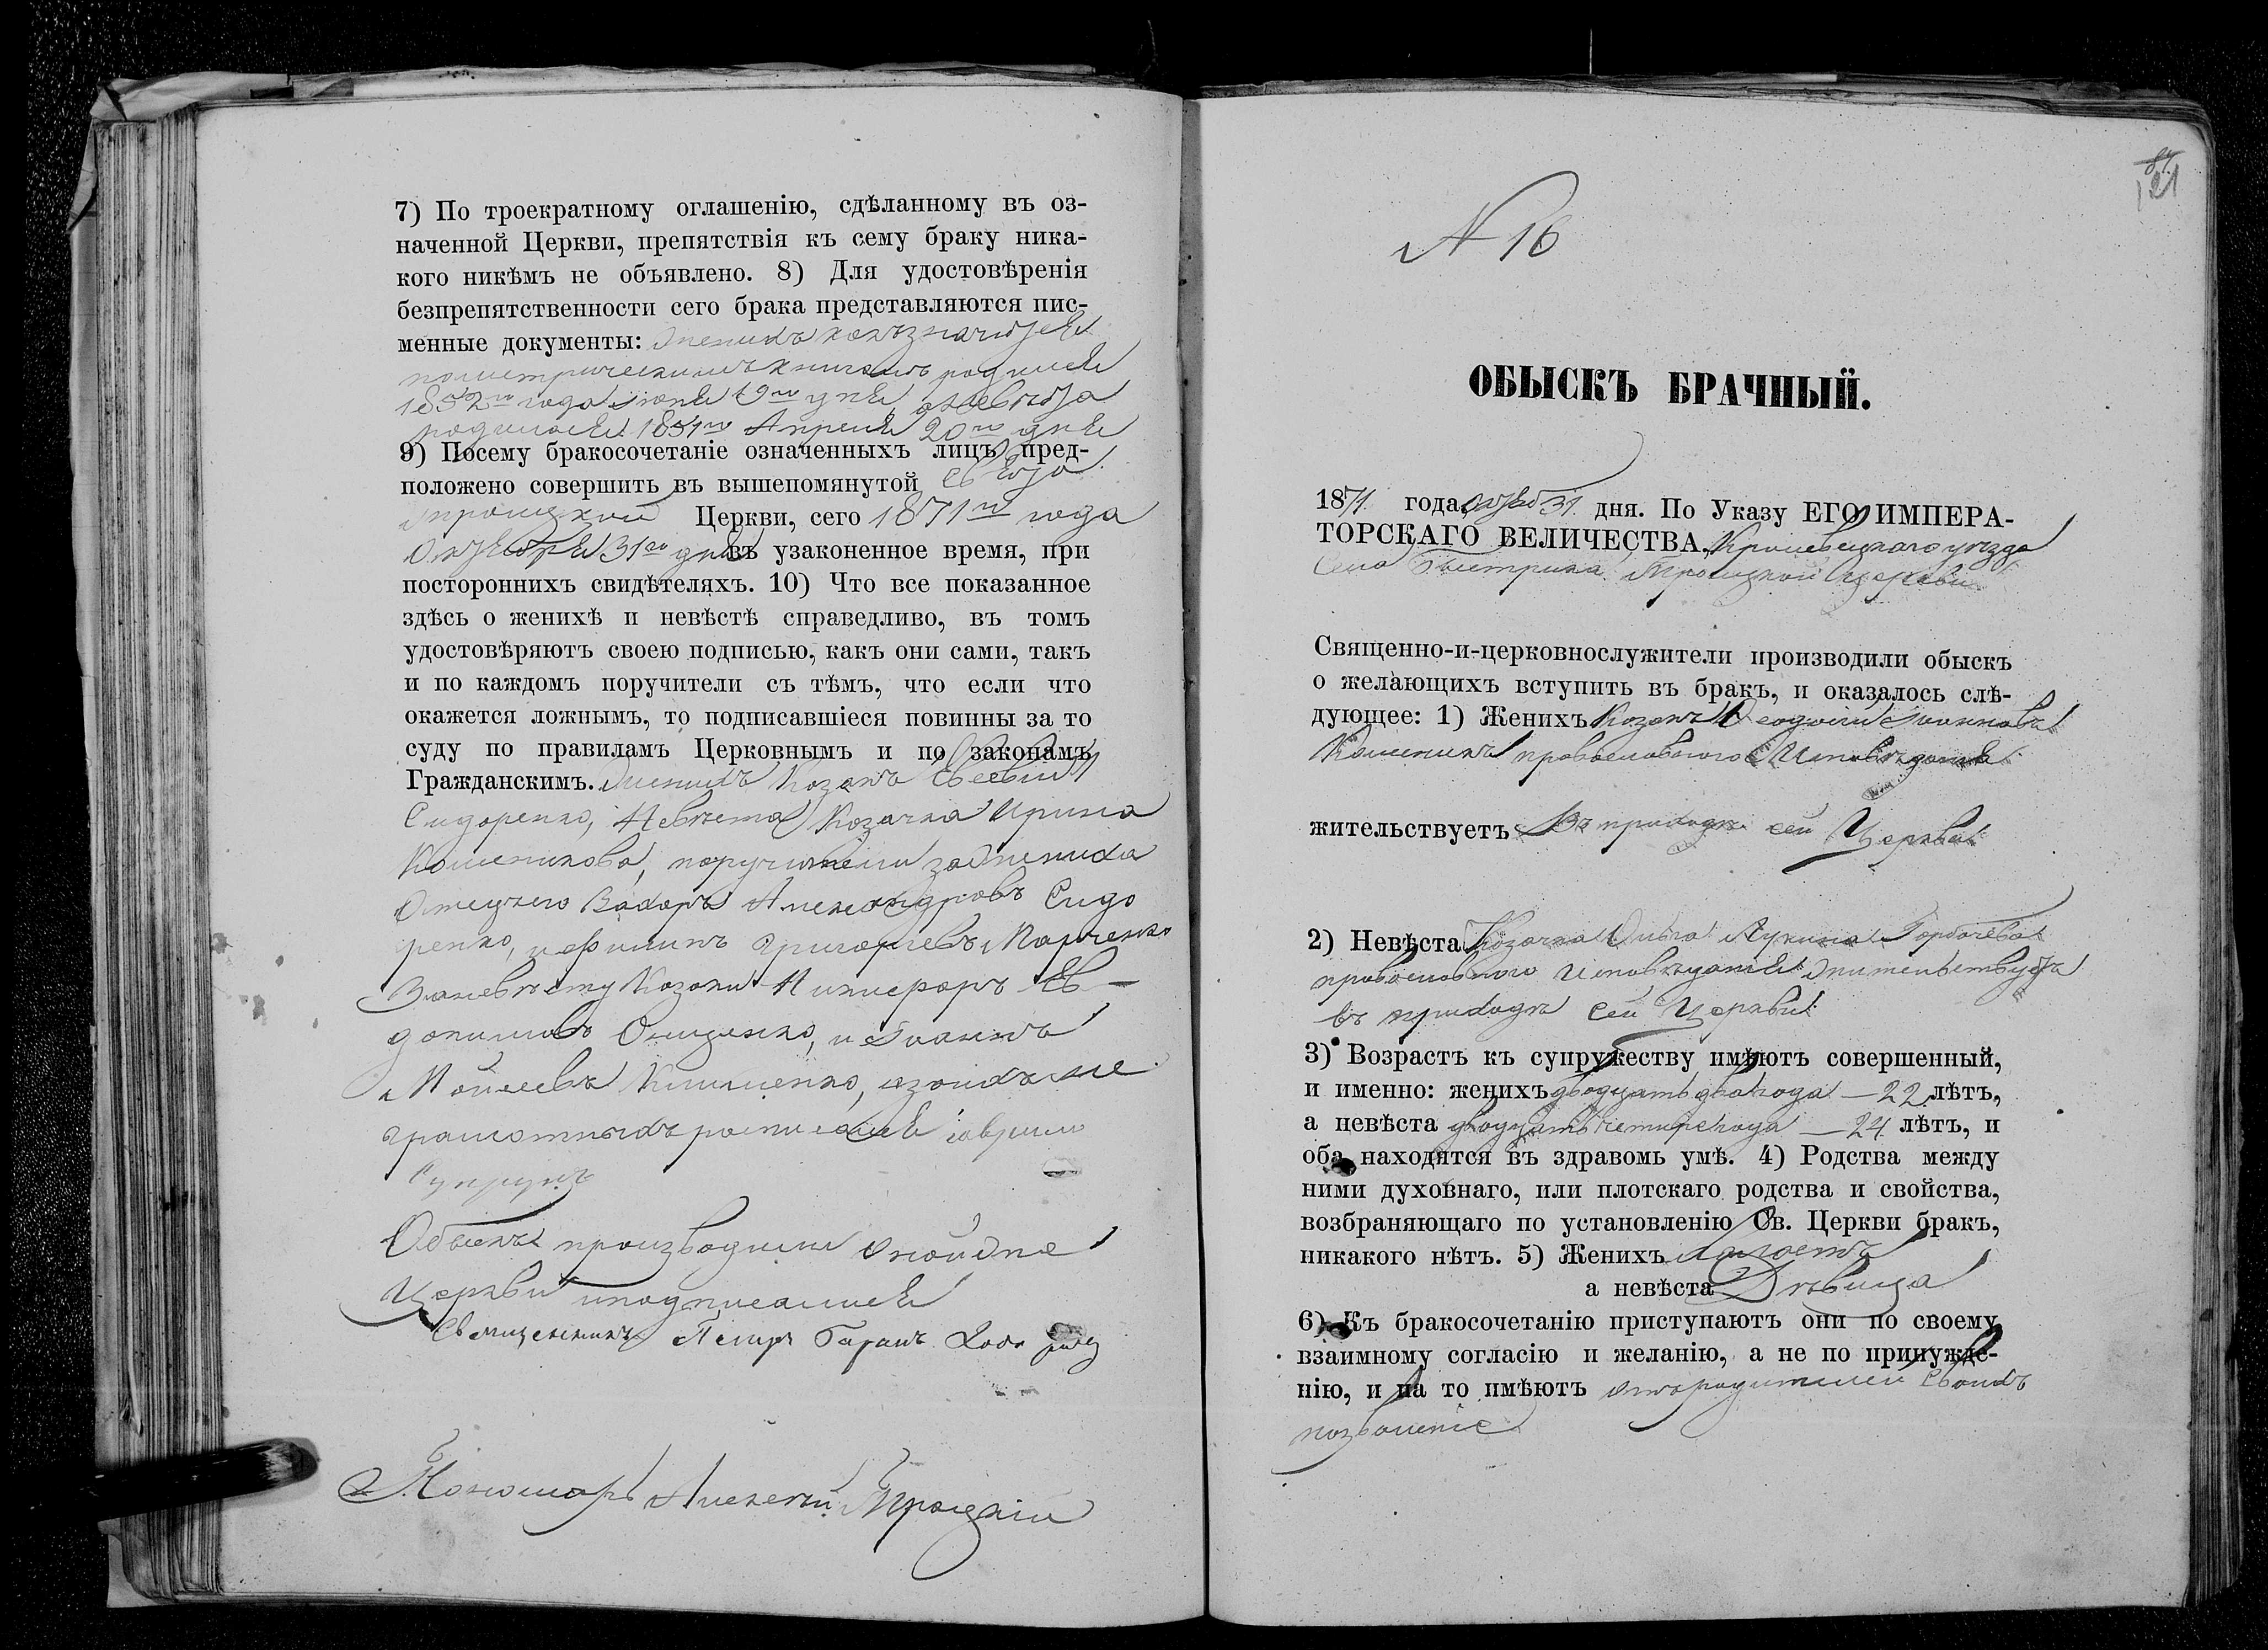 7) По троекратному оглашенію, сдѣланному въ оз-
наченной Церкви, препятствія къ сему браку ника-
кого никѣмъ не объявлено. 8) Для удостовѣренія
безпрепятственности сего брака представляются пис-
менные документы: Женихъ какъ значится
по метрическимъ книгамъ родился
1852го года Іюня 19го дня, а невеста
родилася 1851го Апреля 20го дня
9) Посему бракосочетаніе означенныхъ лицъ пред-
положено совершить въ вышепомянутой Свято
Троицкой Церкви, сего 1871го года
Октября 31го дня въ узаконенное время, при
постороннихъ свидѣтеляхъ. 10) Что все показанное
здѣсь о женихѣ и невѣстѣ справедливо, въ томъ
удостовѣряютъ своею подписью, какъ они сами, такъ
и по каждомъ поручители съ тѣмъ, что если что
окажется ложнымъ, то подписавшіеся повинны за то
суду по правиламъ Церковнымъ и по законамъ
Гражданскимъ. Женихъ Козакъ Евсевій
Сидоренко, Невѣста Козачка Ирина
Комешкова, поручители за Жениха
Александровъ Сидо
ренко, и Филипъ Григорьевъ Марченко
За невѣсту Козаки Никифоръ Ев-
докимовъ Онищенко, и Іоаннъ
Мойсеевъ Клименко, а за ихъ не
грамотныхъ росписался
Супрунъ
Обыскъ производили оной же
Церкви и подписалися
Священникъ Петръ
Пономарь Алексей Троицкій
N 16
121
ОБЫСКЪ БРАЧНЫЙ.
1871 года Октяб 31 дня. По Указу ЕГО ИМПЕРА-
ТОРСКАГО ВЕЛИЧЕСТВА. Кролевецкаго уѣзда
Села Быстрика Троицкой Церкви
Священно-и-церковнослужители производили обыскъ
о желающихъ вступить въ бракъ, и оказалось слѣ-
дующее: 1) Женихъ Козакъ Ѳеодосій Іоанновъ
православнаго Исповѣданія
жительствуетъ Въ приходѣ сей Церкви
2) Невѣста Козачка Ольга Лукина Горбачева
православнаго Исповѣданія жительствуетъ
въ приходѣ сей Церкви
3) Возрастъ къ супружеству имѣютъ совершенный,
и именно: женихъ двадцать два года — 22 лѣтъ,
а невѣста двадцать четире года — 24 лѣтъ, и
оба находятся въ здравомъ умѣ. 4) Родства между
ними духовнаго, или плотскаго родства и свойства,
возбраняющаго по установленію Св. Церкви бракъ,
никакого нѣтъ. 5) Женихъ холостъ
а невѣста Дѣвица
6) Къ бракосочетанію приступаютъ они по своему
взаимному согласію и желанію, а не по принужде-
нію, и на то имѣютъ отъ родителей своихъ
позволеніе